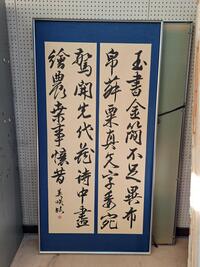 玉書金簡不足異布
帛菽粟真文字委宛
驚聞先代藏詩中畫
繪農桑事懷昔